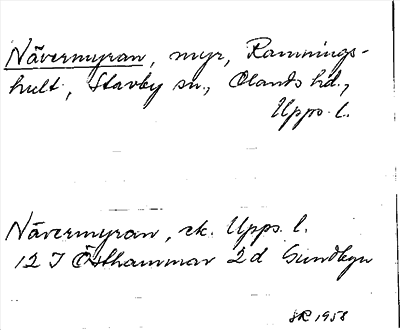 Nävermyran, myr, Rammings-
hult, Stavby sn., Olands hd.,
Upps. l.
Nävermyran, ek. Upps. l.
12 I Östhammar 2 d Sundbyn
SR 1958